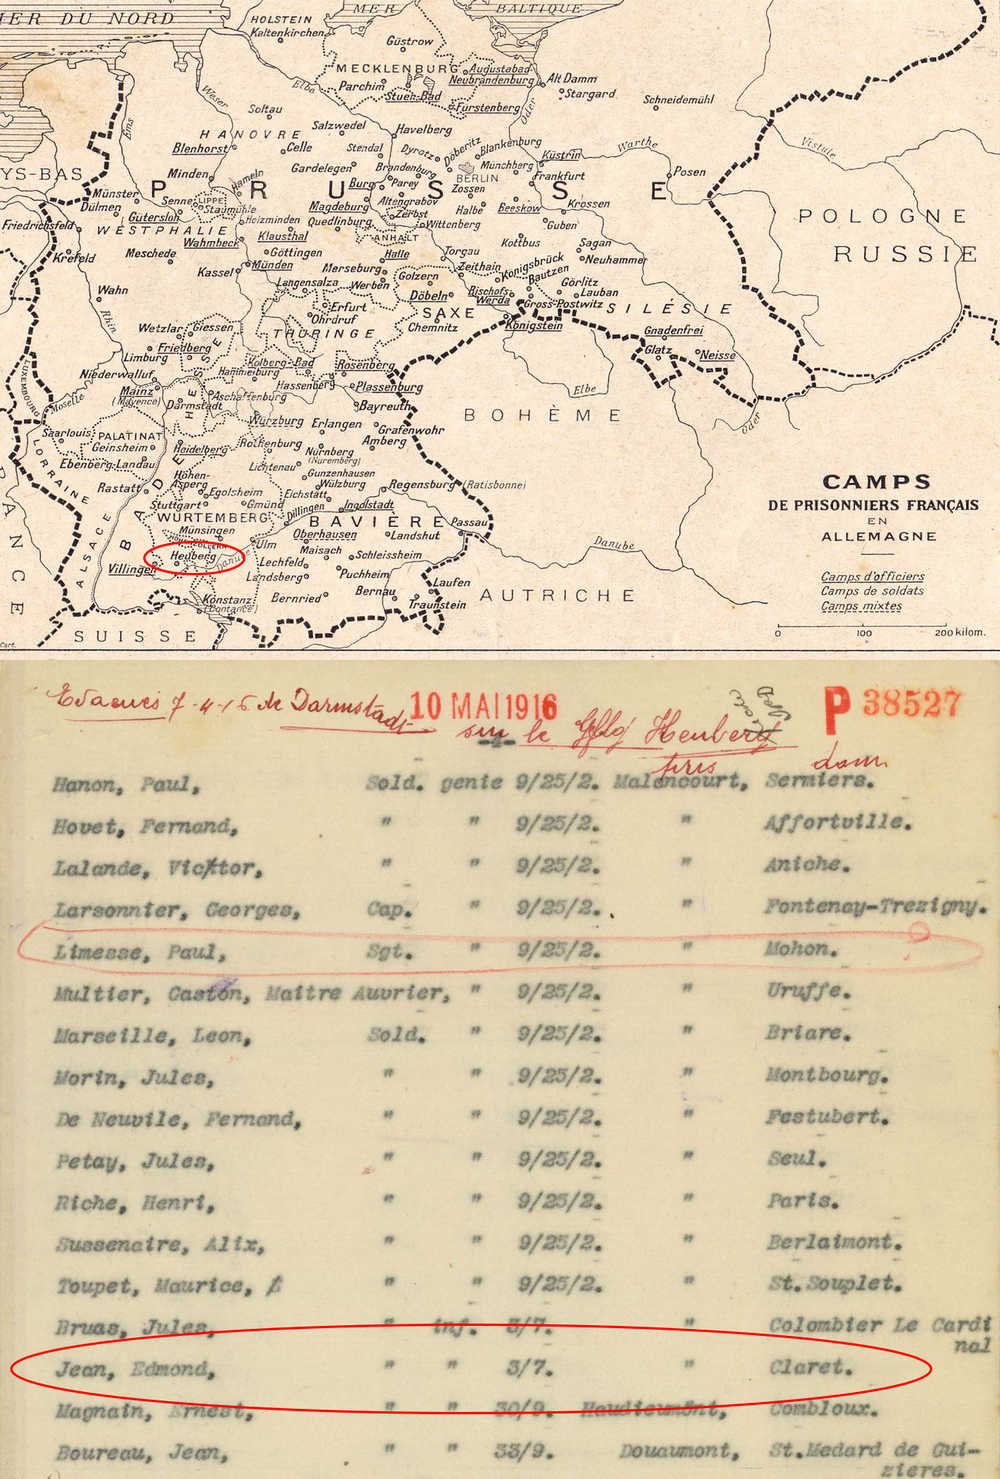 MER DU NORD
MER
BALTIQUE
HOLSTEIN
Kaltenkirchen
Güstrow
MECKLENBURG
Augustabad
Neubrandenburg
Alt Damm
Parchim
Stuer-Bad
Stargard
Fürstenberg
Schneidemühl
Weser
Elbe
Oder
Soltau
Ems
HANOVRE
Salzwedel
Havelberg
Blenhorst
Celle
Stendal
Dyrotz
Döberitz
Blankenburg
Küstrin
Warthe
Vistule
PAYS-BAS
Minden
Hameln
Gardelegen
Brandenburg
Münchberg
BERLIN
Frankfurt
Posen
PRUSSE
Münster
Dülmen
Senne
LIPPE
Staumühle
Burg
Parey
Zossen
Magdeburg
Altengrabov
Friedrichsfeld
Gütersloh
Holzminden
Quedlinburg
Zerbst
Halbe
Beeskow
Krossen
POLOGNE
WESTPHALIE
Wittenberg
Guben
Wahmbeck
Klausthal
ANHALT
Krefeld
Meschede
Göttingen
Halle
Torgau
Kottbus
Sagan
RUSSIE
Kassel
Münden
Merseburg
Zeithain
Königsbrück
Neuhammer
Langensalza
Werben
Golzern
Bautzen
Görlitz
Wahn
Erfurt
Döbeln
Bischofs-Werda
Lauban
Gross-Postwitz
Rhin
Ohrdruf
SAXE
SILÉSIE
Wetzlar
Giessen
THURINGE
Chemnitz
Königstein
Gnadenfrei
Limburg
Friedberg
Glatz
Neisse
LUXEMBOURG
Niederwalluf
Kolberg-Bad
Hammelburg
Rosenberg
Moselle
Mainz
(Mayence)
HESSE
Hassenberg
Plassenburg
Elbe
Darmstadt
Aschaffenburg
Bayreuth
BOHÈME
Oder
Würzburg
Erlangen
Grafenwohr
Saarlouis
PALATINAT
Geinsheim
Heidelberg
Rothenburg
Nürnberg
(Nuremberg)
Amberg
LORRAINE
Ebenberg-Landau
Lichtenau
Gunzenhausen
Rastatt
Hohen-Asperg
Egolsheim
Wülzburg
Regensburg (Ratisbonne)
CAMPS
DE PRISONNIERS FRANÇAIS
EN
ALLEMAGNE
BADE
Stuttgart
Gmünd
Eichstätt
Ingolstadt
ALSACE
WURTEMBERG
Dillingen
BAVIÈRE
Passau
FRANCE
Münsingen
Ulm
Oberhausen
Landshut
Danube
Heuberg
Danube
Maisach
Schleissheim
Camps d'officiers
Camps de soldats
Camps mixtes
Villingen
Lechfeld
Landsberg
Puchheim
Laufen
Konstanz
(Constance)
Bernried
Bernau
Traunstein
AUTRICHE
SUISSE
0 100 200 kilom.
Evacués 7-4-16 de Darmstadt
10 MAI 1916
sur le Gflg Heuberg
P 38527
pris
dom
Hanon, Paul, Sold. genie 9/25/2. Malancourt, Sermiers.
Hovet, Fernand, " " 9/25/2. " Affortville.
Lalande, Victor, " " 9/25/2. " Aniche.
Larsonnier, Georges, Cap. " 9/25/2. " Fontenay-Trezigny.
Limesse, Paul, Sgt. " 9/25/2. " Mohon.
Multier, Gaston, Maitre Auvrier, " 9/25/2. " Uruffe.
Marseille, Leon, Sold. " 9/25/2. " Briare.
Morin, Jules, " " 9/25/2. " Montbourg.
De Neuvile, Fernand, " " 9/25/2. " Festubert.
Petay, Jules, " " 9/25/2. " Seul.
Riche, Henri, " " 9/25/2. " Paris.
Sussenaire, Alix, " " 9/25/2. " Berlaimont.
Toupet, Maurice, " " 9/25/2. " St.Souplet.
Bruas, Jules, " inf. 3/7. " Colombier Le Cardi
nal
Jean, Edmond, " " 3/7. " Claret.
Magnain, Ernest, " " 30/9. Haudieumont, Combloux.
Boureau, Jean, " " 33/9. Douaumont, St.Medard de Gui-
zieres.